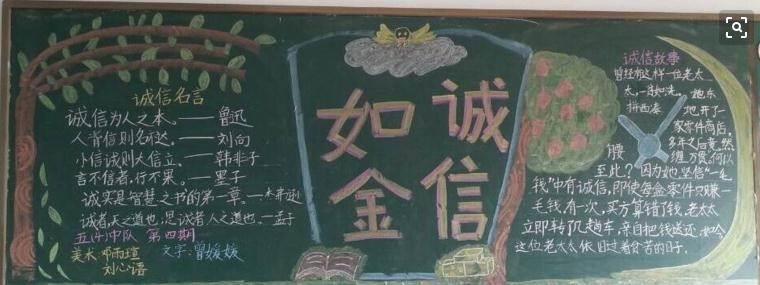 诚信名言
诚信为人之本。——鲁迅
人背信则名不达。——刘向
小信诚则大信立。——韩非子
言不信者,行不果。——墨子
诚实是智慧之书的第一章。——杰弗逊
诚者,天之道也,思诚者人之道也。—孟子
中队 第四期
美术 邓雨瑄 文字:曾媛媛
刘心语
诚信
如金
诚信故事
曾经有这样一位老太
太,一贫如洗。她东
拼西凑 地开了一
家零件商店。
多年之后竟然
腰缠万贯,何以
至此?因为她坚信“一毛
钱”中有诚信,即使每金零件只赚一
毛钱,有一次,买方算错了钱,老太太
立即转了几趟车,亲自把钱送还,如今
这位老太太依旧过着贫苦的日子。